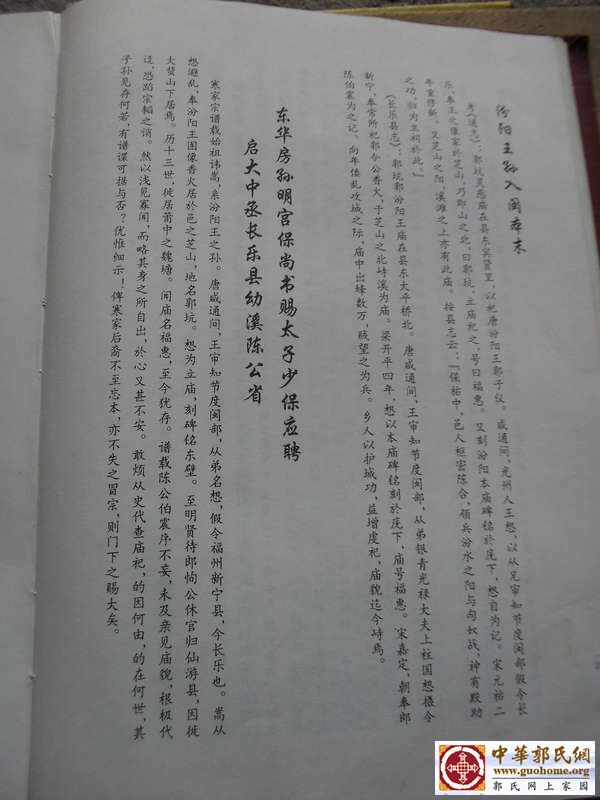 汾阳王孙入闽本末
考《通志》：郭坑灵惠庙在县东宾贤里，以祀唐汾阳王郭子仪。咸通间，光州人王想，以从兄审知节度闽部假令长
乐，奉王之像家於芝山，乃即山之北，曰郭坑，立庙祀之，号曰福惠。又刻汾阳本庙碑铭於庑下，想自为记。宋元祐二
年重修新。又芝山之阳，溪滩之上亦有此庙。 按县志云：“保祐中，邑人枢密陈合，领兵汾水之阳与匈奴战，神有默助
之功，归为立祠於此。”
《长乐县志》：郭坑郭汾阳王庙在县东大平桥北。唐咸通间，王审知节度闽部，从弟银青光禄大夫上柱国想摄令
新宁，奉常所祀郭令公香火，于芝山之北峙溪为庙。梁开平四年，想以本庙碑铭刻於庑下，庙号福惠。宋嘉定，朝奉郎
陈伯震为之记。向年倭乱攻城之际，庙中出蜂数万，贼望之为兵。乡人以护城功，益增虔祀，庙貌迄今峙焉。
东华房孙明宫保尚书赐太子少保应聘
启大中丞长乐县幼溪陈公省
寒家宗谱载始祖讳嵩，系汾阳王之孙。唐咸通间，王审知节度闽部，从弟名想，假令福州新宁县，今长乐也。嵩从
想避乱，奉汾阳王图像香火居於邑之芝山，地名郭坑。想为立庙，刻碑铭东壁。至明贤待郎恂公休官归仙游县，因徙
大蜚山下居焉。历十三世，徙居莆中之魏塘。闻庙名福惠，至今犹存。谱载陈公伯震序不妄，未及亲见庙貌，根极代
迁，恐蹈宗韬之诮。然以浅见寡闻，而略其身之所自出，於心又甚不安。敢烦从史代查庙祀，的因何由，的在何世，其
子孙见存何若，有谱谍可据与否？优惟细示！俾寒家后裔不至忘本，亦不失之冒宗，则门下之赐大矣。
中華郭氏網
www.guohome.org
郭氏网上家园